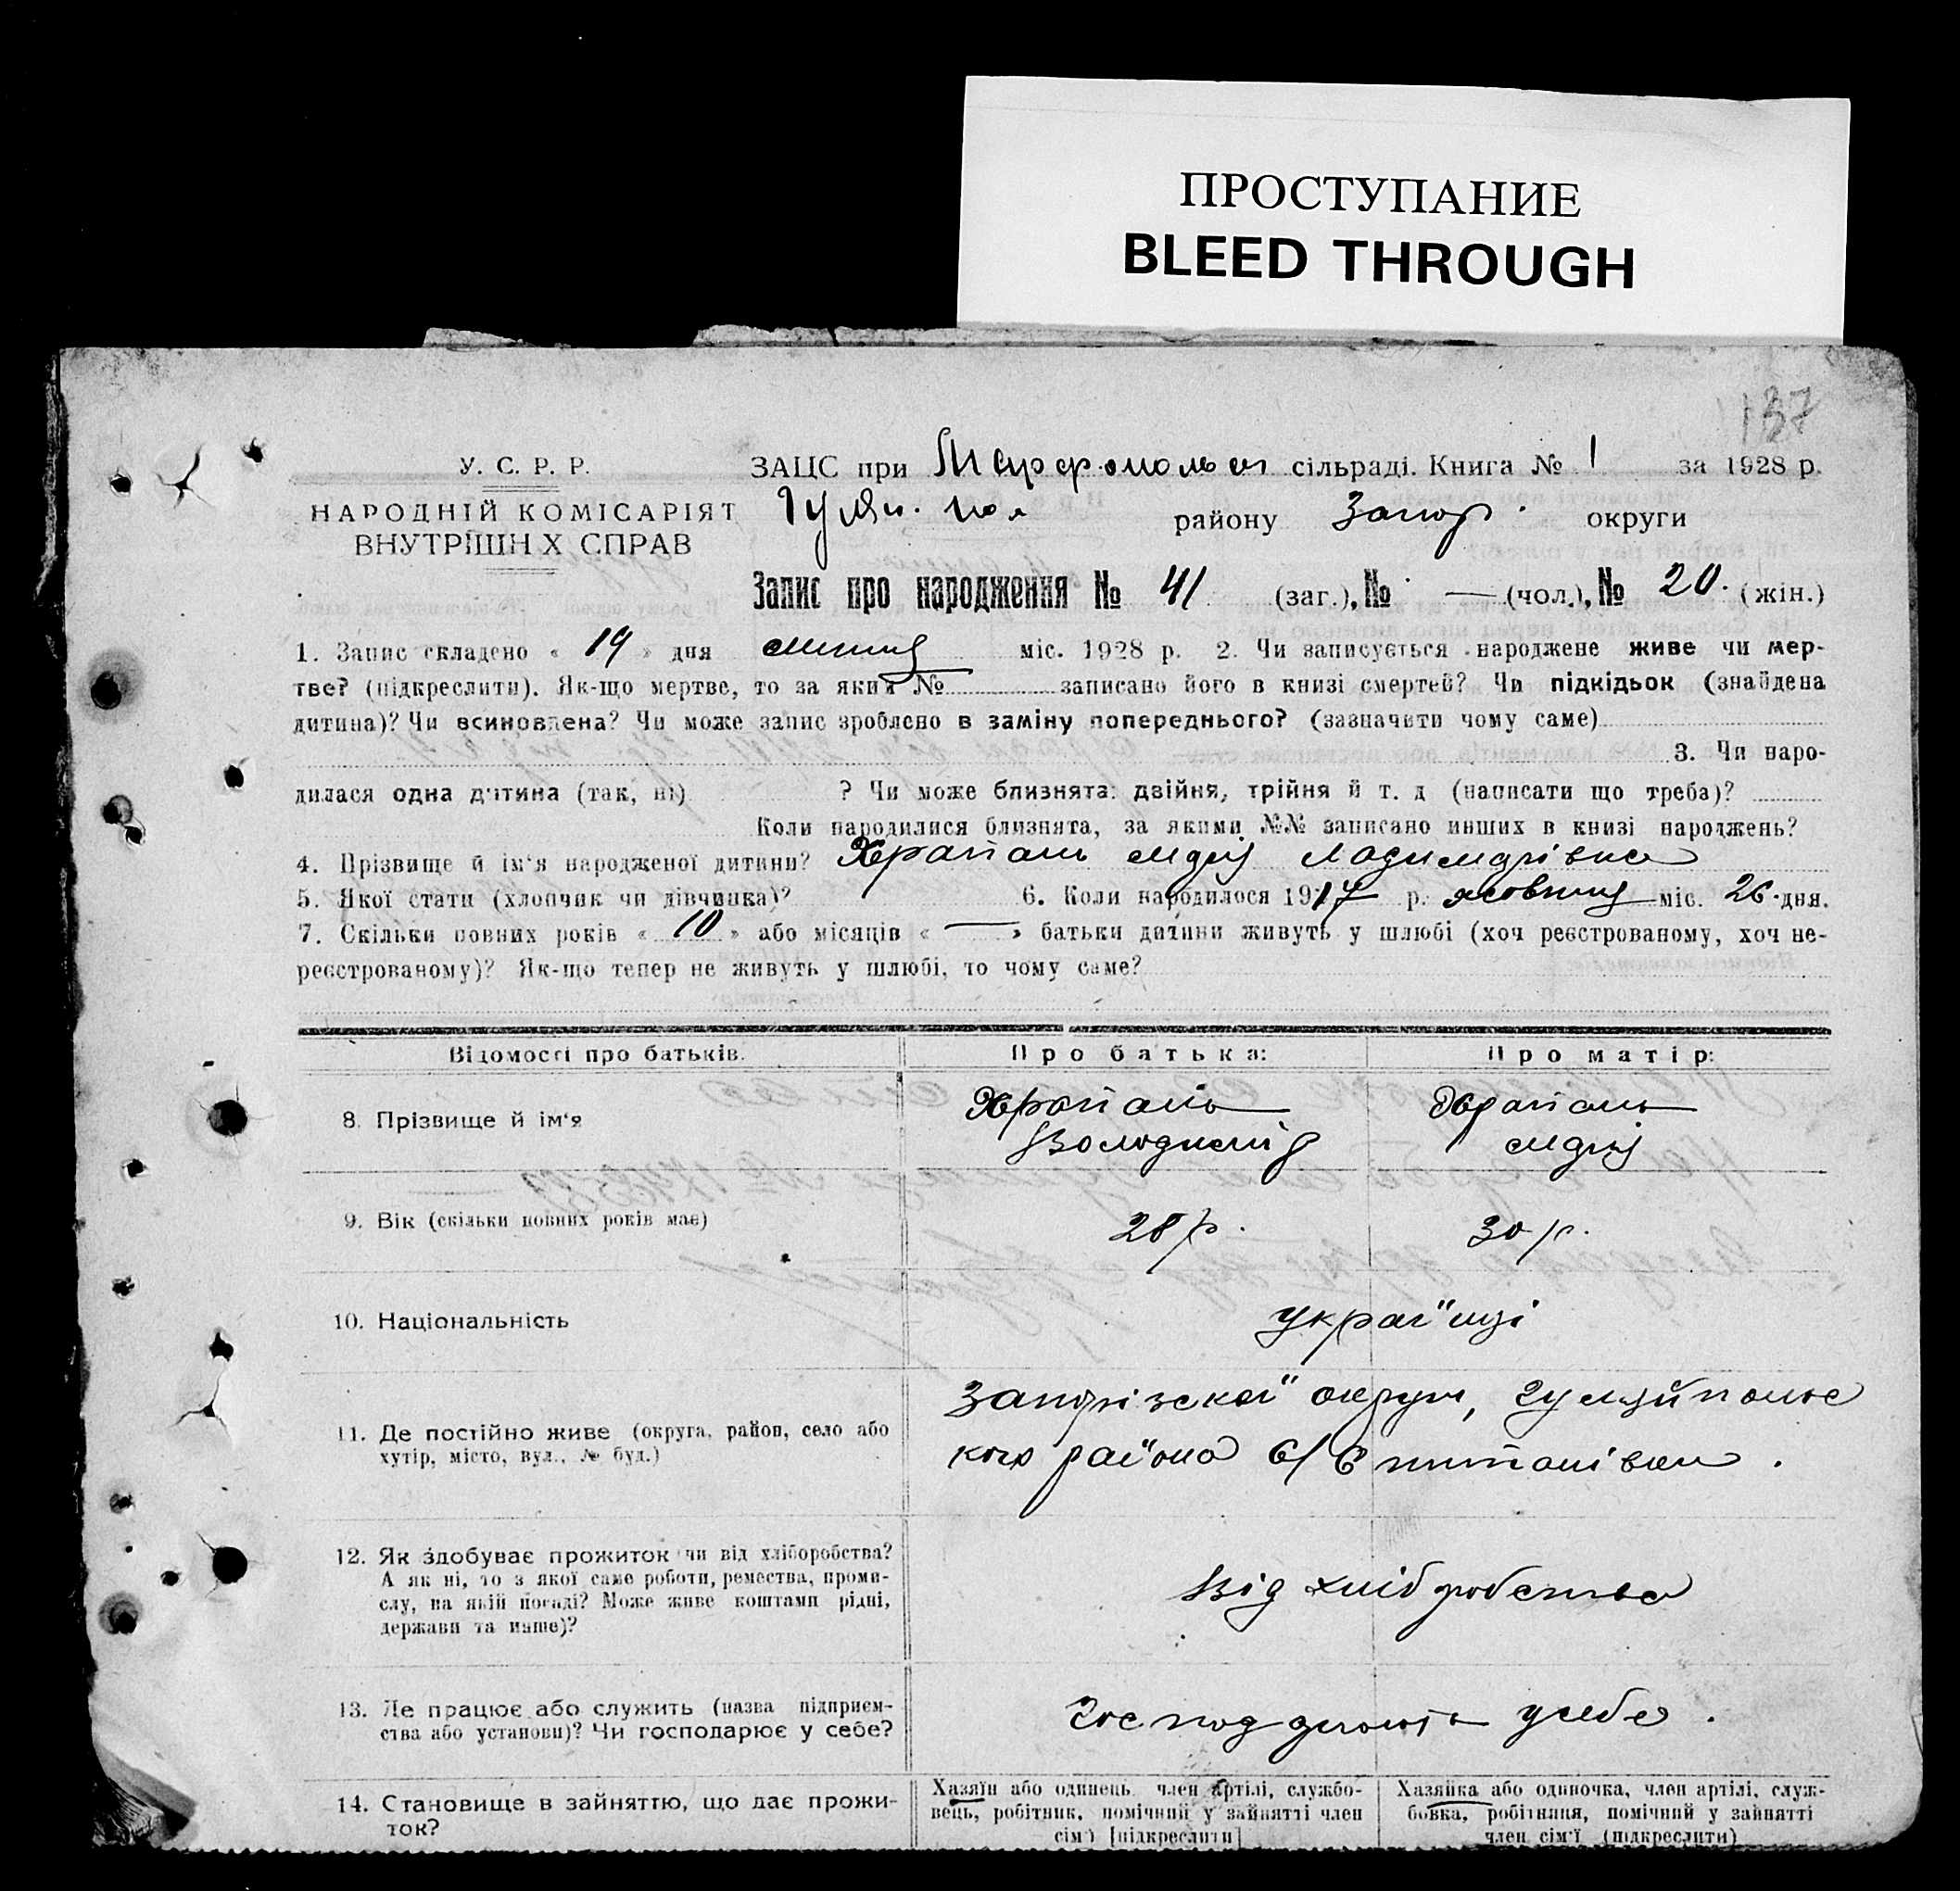 ПРОСТУПАНИЕ
BLEED THROUGH
137
У. С. Р. Р.
НАРОДНІЙ КОМІСАРІЯТ
ВНУТРІШН Х СПРАВ
ЗАЦС при сільраді. Книга № 1 за 1928 р.
Гуляй. пол району Запор. округи
Запис про народження № 41 (заг.), № — (чол.), № 20. (жін.)
1. Запис складено « 19 » дня липця міс. 1928 р. 2. Чи записується народжене живе чи мер-
тве? (підкреслити). Як-що мертве, то за яким № записано його в книзі смертей? Чи підкідьок (знайдена
дитина)? Чи всиновлена? Чи може запис зроблено в заміну попереднього? (зазначити чому саме)
3. Чи наро-
дилася одна дитина (так, ні) ? Чи може близнята: двійня, трійня й т. д (написати що треба)?
Коли народилися близнята, за якими №№ записано инших в книзі народжень?
4. Прізвище й ім'я народженої дитини? Храпань
5. Якої стати (хлопчик чи дівчинка)? 6. Коли народилося 1917 р. жовтня міс. 26 дня.
7. Скільки повних років « 10 » або місяців « — » батьки дитини живуть у шлюбі (хоч реєстрованому, хоч не-
реєстрованому)? Як-що тепер не живуть у шлюбі, то чому саме?
Відомості про батьків. Про батька: Про матір:
8. Прізвище й ім'я Храпань Храпань
Володимір
9. Вік (скільки повних років має) 28 р. 30 р.
10. Національність Україці
11. Де постійно живе (округа, район, село або
хутір, місто, вул., № буд.)
Запорізскої округи, Гуляйпольс
кого района
12. Як здобуває прожиток чи від хліборобства?
А як ні, то з якої саме роботи, ремества, проми-
слу, на якій посаді? Може живе коштами рідні,
держави та инше)?
Від хліборобства
13. Де працює або служить (назва підприєм-
ства або установи)? Чи господарює у себе?
Господарюють у себе.
14. Становище в зайняттю, що дає прожи-
ток?
Хазяїн або одинець, член артілі, службо-
вець, робітник, помічний у зайнятті член
сім'ї [підкреслити]
Хазяйка або одиночка, член артілі, служ-
бовка, робітниця, помічний у зайнятті
член сім'ї (підкреслити)